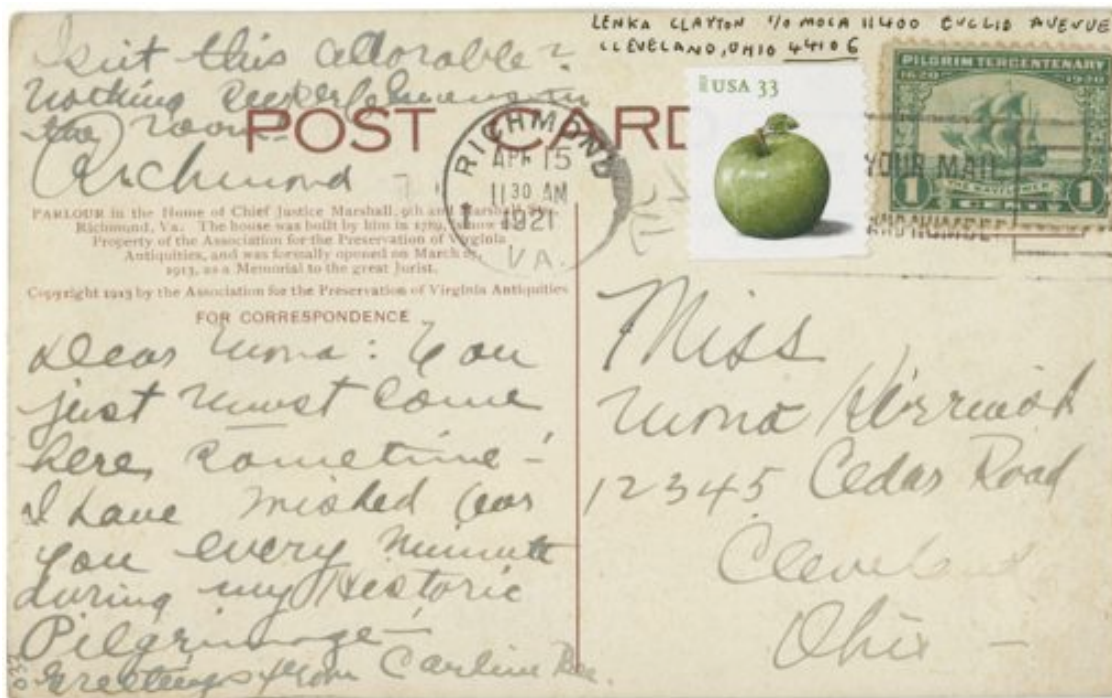 Isn't this adorable?
Nothing
the room
Richmond
LENKA CLAYTON c/o MOCA 11400 EUCLID AVENUE
CLEVELAND, OHIO 44106
USA 33
PILGRIM TERCENTENARY
1620 1920
THE MAYFLOWER
1 CENT 1
POST CARD
RICHMOND
APR 15
11 30 AM
1921
VA.
YOUR MAIL
PARLOUR in the Home of Chief Justice Marshall, 9th and Marshall Sts.,
Richmond, Va. The house was built by him in 1789, is now
Property of the Association for the Preservation of Virginia
Antiquities, and was formally opened on March
1913, as a Memorial to the great Jurist.
Copyright 1913 by the Association for the Preservation of Virginia Antiquities
FOR CORRESPONDENCE
Dear Mona: You
just must come
here, sometime -
I have wished for
you every minute
during my Historic
Pilgrimage -
Greetings from Carline
Miss
Mona
12345 Cedar Road
Cleveland
Ohio -